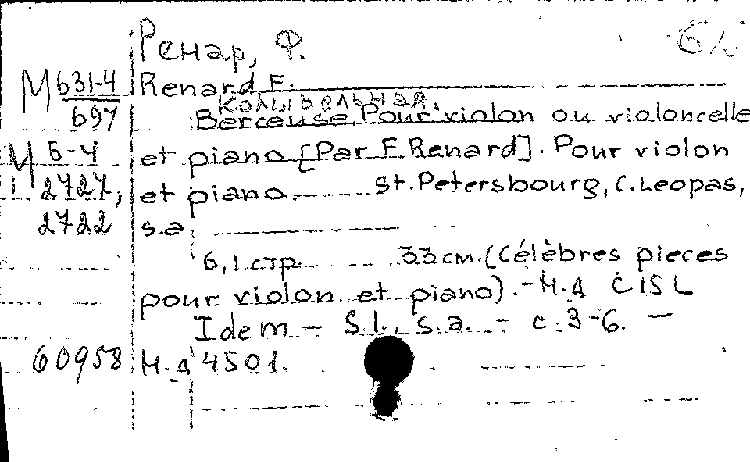 Ренар, Ф.
М 631-4 Renard F.
697 Колыбельная.
Berceuse Pour violon ou violoncelle
М 5-4 et piano [Par F. Renard]. Pour violon
2727, et piano. St. Petersbourg, C. Leopas,
2722 s.a
6,1 стр. 33 см. (Célèbres pieces
pour violon et piano).- Н.д C15L
Idem - S.l., s.a. - с. 3-6. -
60958 Н.д 4501.